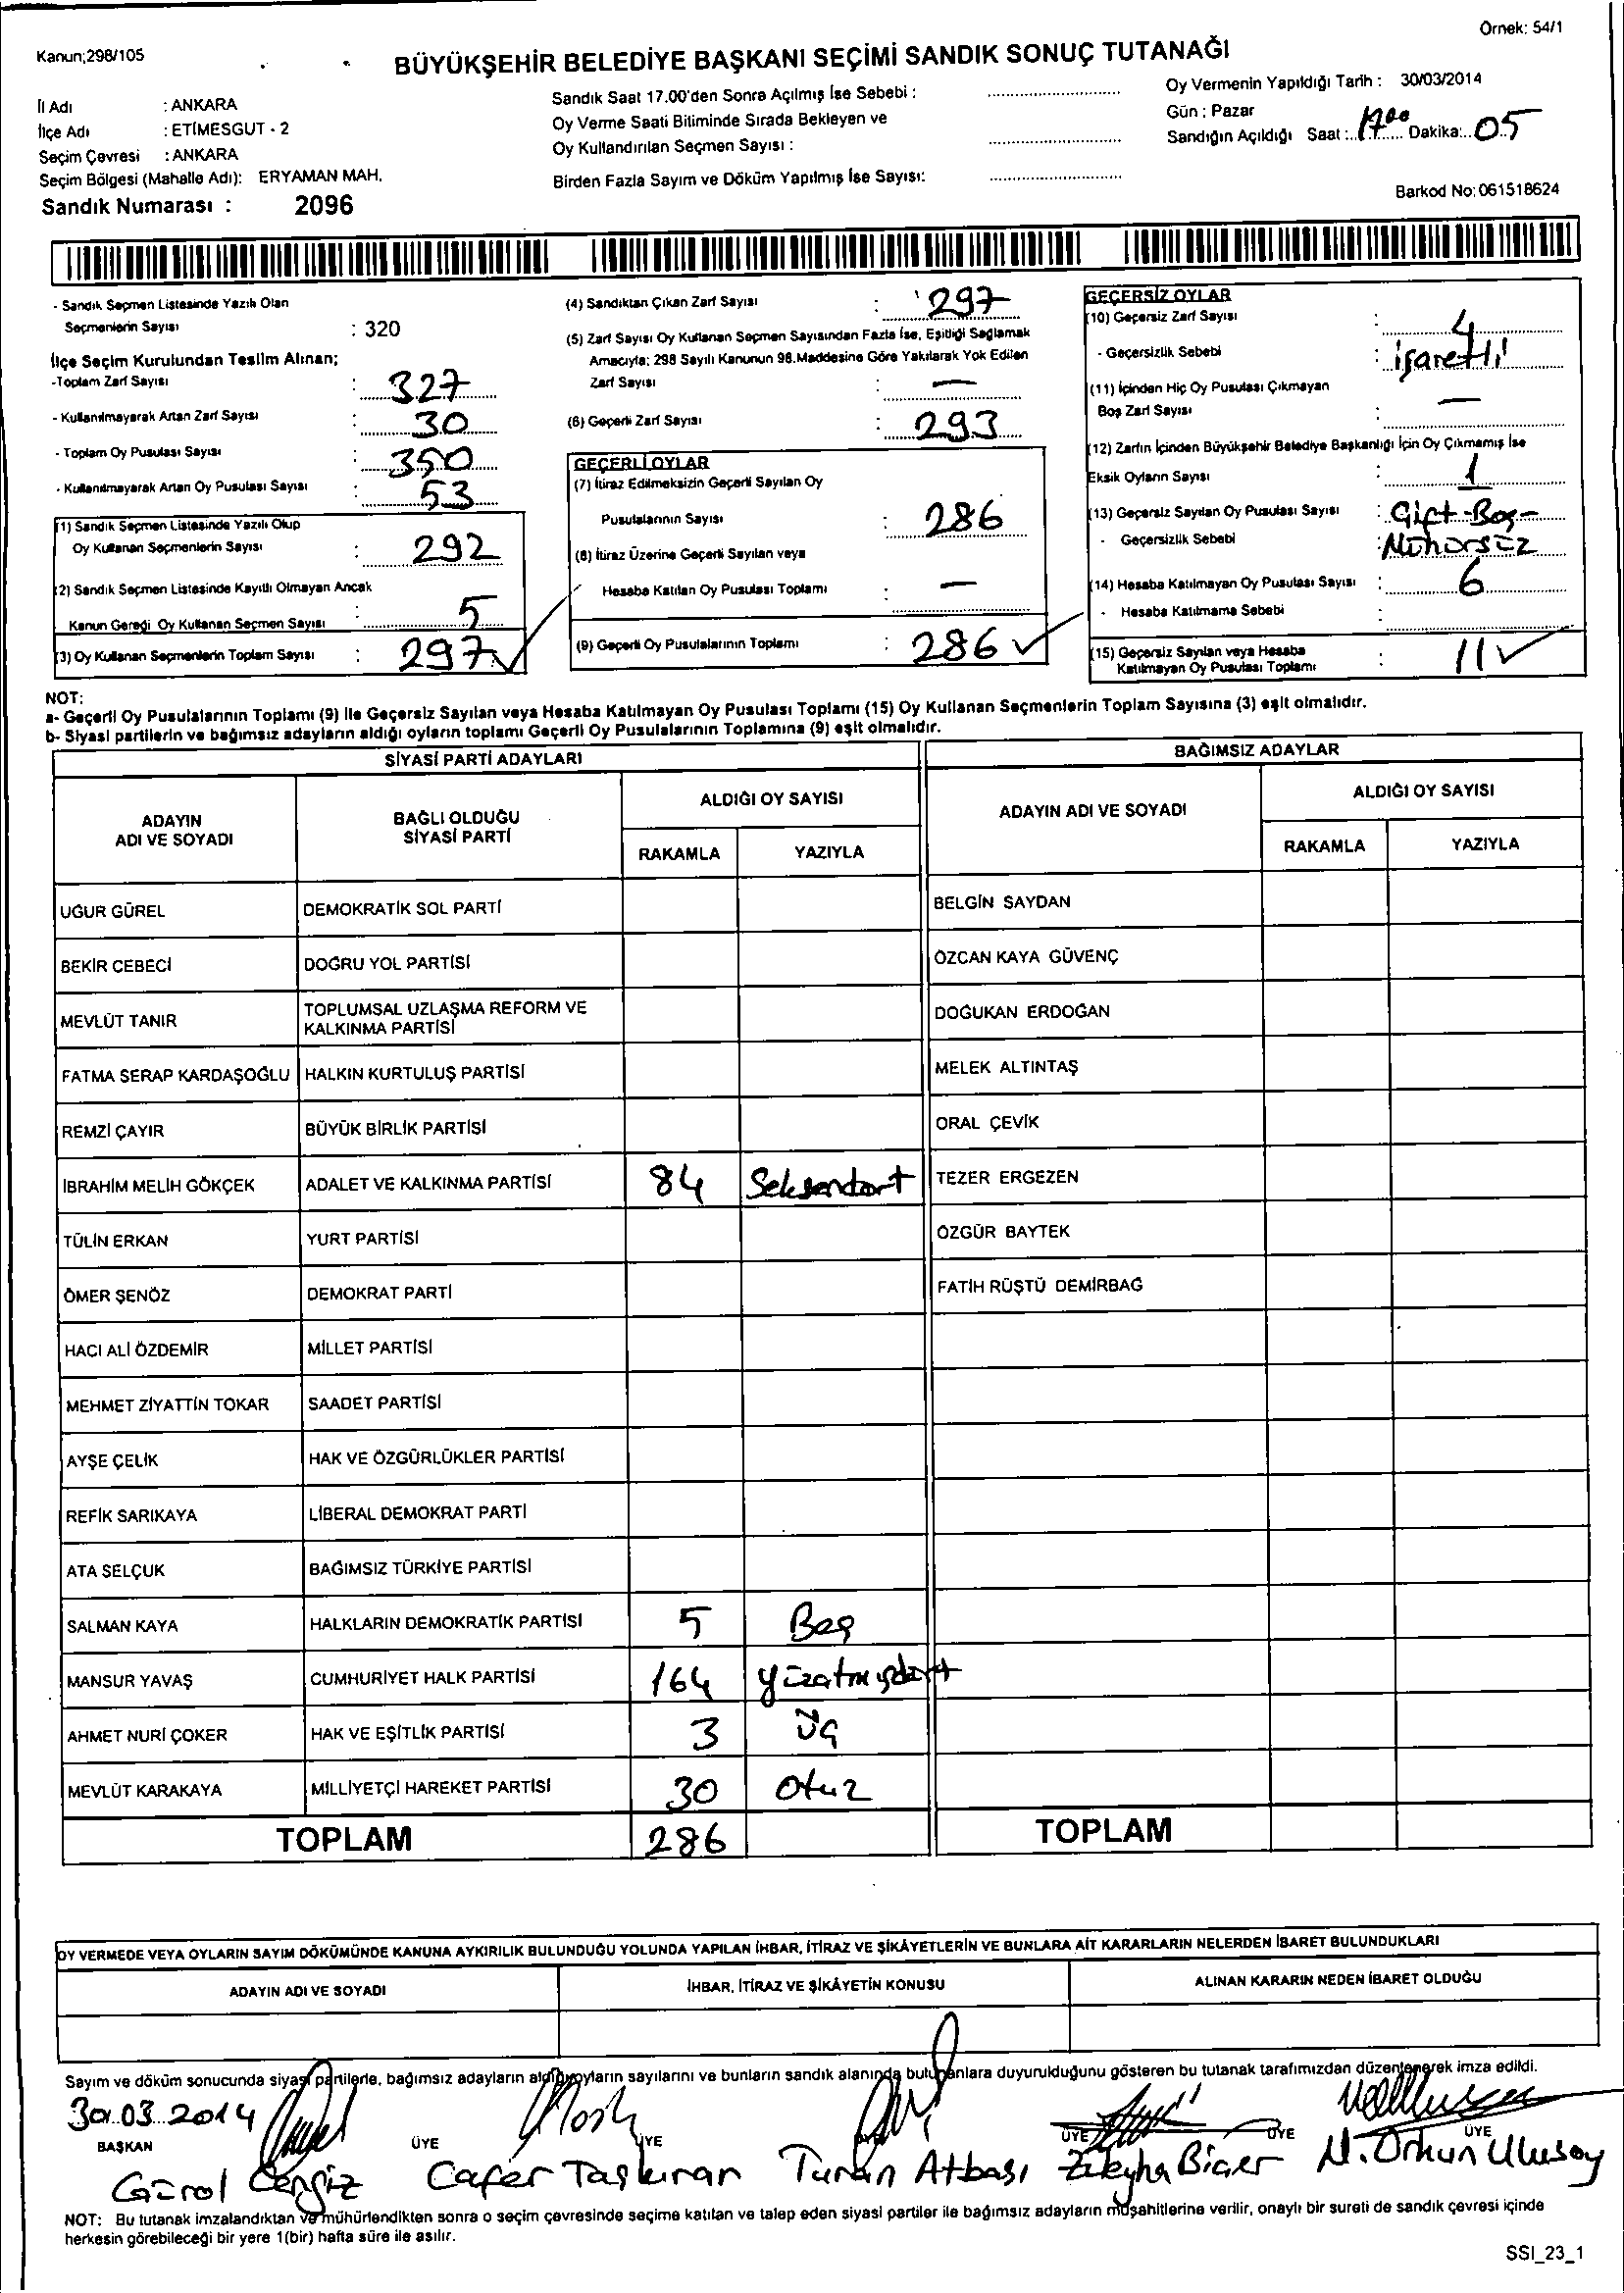 Örnek: 54/1
Kanun;298/105
BÜYÜKŞEHİR BELEDİYE BAŞKANI SEÇİMİ SANDIK SONUÇ TUTANAĞI
İl Adı : ANKARA
İlçe Adı : ETİMESGUT - 2
Seçim Çevresi : ANKARA
Seçim Bölgesi (Mahalle Adı): ERYAMAN MAH.
Sandık Numarası : 2096
Sandık Saat 17.00'den Sonra Açılmış İse Sebebi :
Oy Verme Saati Bitiminde Sırada Bekleyen ve
Oy Kullandırılan Seçmen Sayısı :
Birden Fazla Sayım ve Döküm Yapılmış İse Sayısı:
Oy Vermenin Yapıldığı Tarih : 30/03/2014
Gün : Pazar
Sandığın Açıldığı Saat : 17.00 Dakika: 05
Barkod No: 061518624
- Sandık Seçmen Listesinde Yazılı Olan
Seçmenlerin Sayısı : 320
İlçe Seçim Kurulundan Teslim Alınan;
-Toplam Zarf Sayısı : 327
- Kullanılmayarak Artan Zarf Sayısı : 30
- Toplam Oy Pusulası Sayısı : 350
- Kullanılmayarak Artan Oy Pusulası Sayısı : 53
(1) Sandık Seçmen Listesinde Yazılı Olup
Oy Kullanan Seçmenlerin Sayısı : 292
(2) Sandık Seçmen Listesinde Kayıtlı Olmayan Ancak
Kanun Gereği Oy Kullanan Seçmen Sayısı : 5
(3) Oy Kullanan Seçmenlerin Toplam Sayısı : 297
(4) Sandıktan Çıkan Zarf Sayısı : 297
(5) Zarf Sayısı Oy Kullanan Seçmen Sayısından Fazla İse, Eşitliği Sağlamak
Amacıyla; 298 Sayılı Kanunun 98.Maddesine Göre Yakılarak Yok Edilen
Zarf Sayısı : —
(6) Geçerli Zarf Sayısı : 293
GEÇERLİ OYLAR
(7) İtiraz Edilmeksizin Geçerli Sayılan Oy
Pusulalarının Sayısı : 286
(8) İtiraz Üzerine Geçerli Sayılan veya
Hesaba Katılan Oy Pusulası Toplamı : —
(9) Geçerli Oy Pusulalarının Toplamı : 286
GEÇERSİZ OYLAR
(10) Geçersiz Zarf Sayısı : 4
- Geçersizlik Sebebi : işaretli
(11) İçinden Hiç Oy Pusulası Çıkmayan
Boş Zarf Sayısı : —
(12) Zarfın İçinden Büyükşehir Belediye Başkanlığı İçin Oy Çıkmamış İse
Eksik Oyların Sayısı : 1
(13) Geçersiz Sayılan Oy Pusulası Sayısı : Çift-Boş-
- Geçersizlik Sebebi : Mühürsüz
(14) Hesaba Katılmayan Oy Pusulası Sayısı : 6
- Hesaba Katılmama Sebebi :
(15) Geçersiz Sayılan veya Hesaba
Katılmayan Oy Pusulası Toplamı : 11
NOT:
a- Geçerli Oy Pusulalarının Toplamı (9) ile Geçersiz Sayılan veya Hesaba Katılmayan Oy Pusulası Toplamı (15) Oy Kullanan Seçmenlerin Toplam Sayısına (3) eşit olmalıdır.
b- Siyasi partilerin ve bağımsız adayların aldığı oyların toplamı Geçerli Oy Pusulalarının Toplamına (9) eşit olmalıdır.
SİYASİ PARTİ ADAYLARI
BAĞIMSIZ ADAYLAR
ADAYIN
ADI VE SOYADI
BAĞLI OLDUĞU
SİYASİ PARTİ
ALDIĞI OY SAYISI
RAKAMLA YAZIYLA
ADAYIN ADI VE SOYADI
ALDIĞI OY SAYISI
RAKAMLA YAZIYLA
UĞUR GÜREL DEMOKRATİK SOL PARTİ BELGİN SAYDAN
BEKİR CEBECİ DOĞRU YOL PARTİSİ ÖZCAN KAYA GÜVENÇ
MEVLÜT TANIR TOPLUMSAL UZLAŞMA REFORM VE
KALKINMA PARTİSİ DOĞUKAN ERDOĞAN
FATMA SERAP KARDAŞOĞLU HALKIN KURTULUŞ PARTİSİ MELEK ALTINTAŞ
REMZİ ÇAYIR BÜYÜK BİRLİK PARTİSİ ORAL ÇEVİK
İBRAHİM MELİH GÖKÇEK ADALET VE KALKINMA PARTİSİ 84 Seksendört TEZER ERGEZEN
TÜLİN ERKAN YURT PARTİSİ ÖZGÜR BAYTEK
ÖMER ŞENÖZ DEMOKRAT PARTİ FATİH RÜŞTÜ DEMİRBAĞ
HACI ALİ ÖZDEMİR MİLLET PARTİSİ
MEHMET ZİYATTİN TOKAR SAADET PARTİSİ
AYŞE ÇELİK HAK VE ÖZGÜRLÜKLER PARTİSİ
REFİK SARIKAYA LİBERAL DEMOKRAT PARTİ
ATA SELÇUK BAĞIMSIZ TÜRKİYE PARTİSİ
SALMAN KAYA HALKLARIN DEMOKRATİK PARTİSİ 5 Beş
MANSUR YAVAŞ CUMHURİYET HALK PARTİSİ 164 yüzatmışdört
AHMET NURİ ÇOKER HAK VE EŞİTLİK PARTİSİ 3 Üç
MEVLÜT KARAKAYA MİLLİYETÇİ HAREKET PARTİSİ 30 Otuz
TOPLAM 286 TOPLAM
OY VERMEDE VEYA OYLARIN SAYIM DÖKÜMÜNDE KANUNA AYKIRILIK BULUNDUĞU YOLUNDA YAPILAN İHBAR, İTİRAZ VE ŞİKÂYETLERİN VE BUNLARA AİT KARARLARIN NELERDEN İBARET BULUNDUKLARI
ADAYIN ADI VE SOYADI İHBAR, İTİRAZ VE ŞİKÂYETİN KONUSU ALINAN KARARIN NEDEN İBARET OLDUĞU
Sayım ve döküm sonucunda siyasi partilerle, bağımsız adayların aldığı oyların sayılarını ve bunların sandık alanında bulunanlara duyurulduğunu gösteren bu tutanak tarafımızdan düzenlenerek imza edildi.
30.03.2014
BAŞKAN ÜYE ÜYE ÜYE ÜYE ÜYE
Gürol Cengiz Cafer Taşkıran Turan Atbaşı Züleyha Biçer N. Orhun Ulusoy
NOT: Bu tutanak imzalandıktan ve mühürlendikten sonra o seçim çevresinde seçime katılan ve talep eden siyasi partiler ile bağımsız adayların müşahitlerine verilir, onaylı bir sureti de sandık çevresi içinde
herkesin görebileceği bir yere 1(bir) hafta süre ile asılır.
SSI_23_1